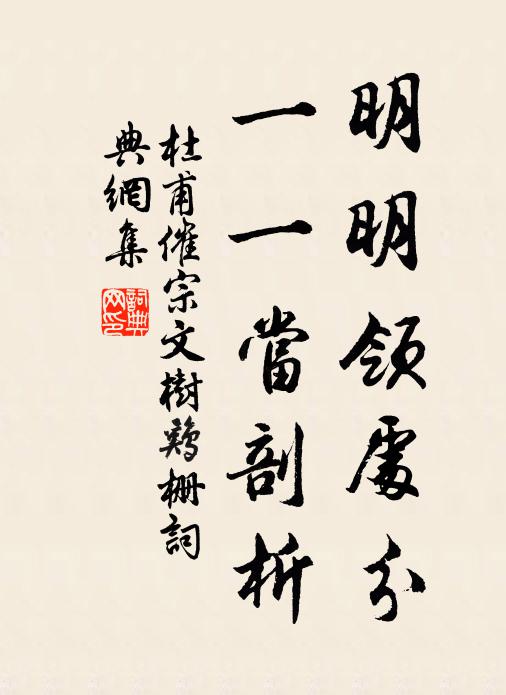 明明領處分
一一當剖析
杜甫催宗文樹鷄柵詞
典網集
詞典網印